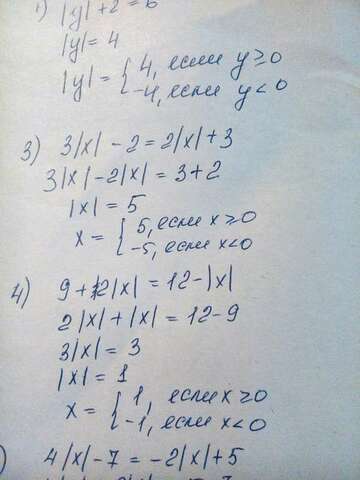 |y| + 2 = 6
|y| = 4
|y| = { 4, если y ≥ 0
-4, если y < 0
3) 3|x| - 2 = 2|x| + 3
3|x| - 2|x| = 3 + 2
|x| = 5
x = { 5, если x ≥ 0
-5, если x < 0
4) 9 + 2|x| = 12 - |x|
2|x| + |x| = 12 - 9
3|x| = 3
|x| = 1
x = { 1, если x ≥ 0
-1, если x < 0
4|x| - 7 = -2|x| + 5